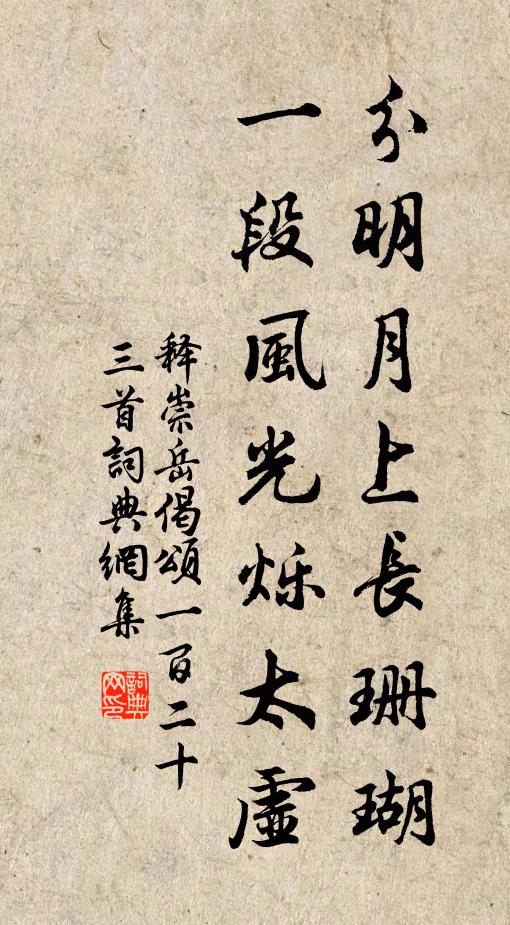 分明月上長珊瑚
一段風光烁太虛
释崇岳偈頌一百二十
三首詞典網集
詞典
网印